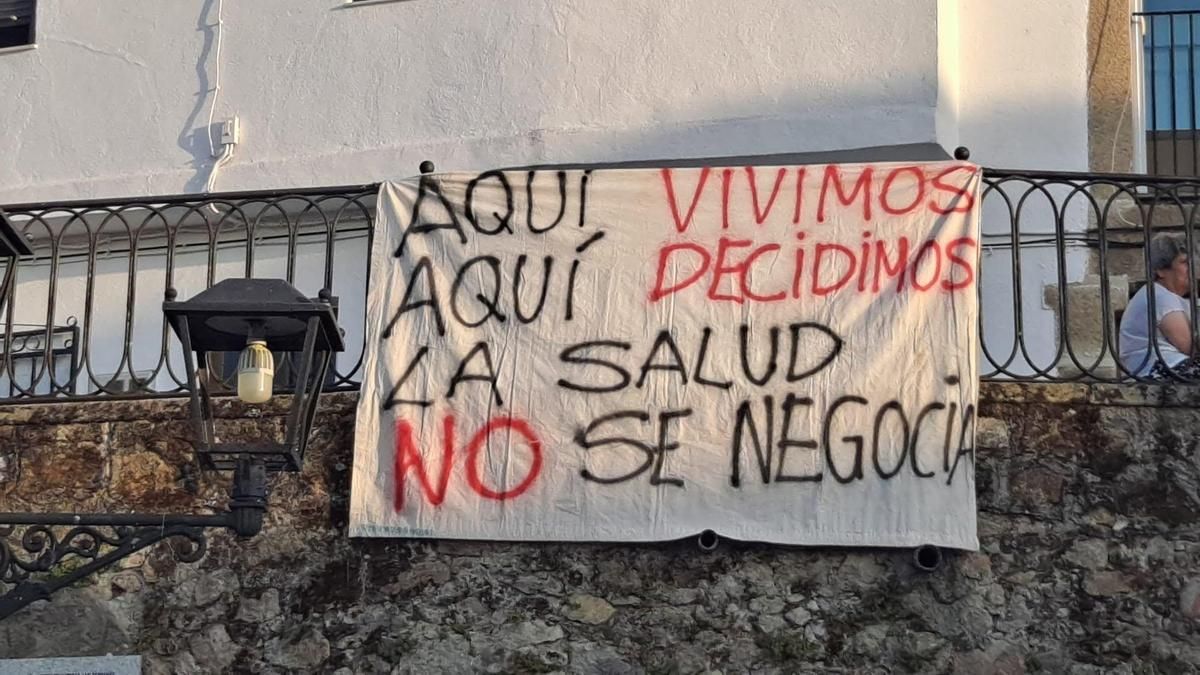 AQUÍ VIVIMOS
AQUÍ DECIDIMOS
LA SALUD
NO SE NEGOCIA